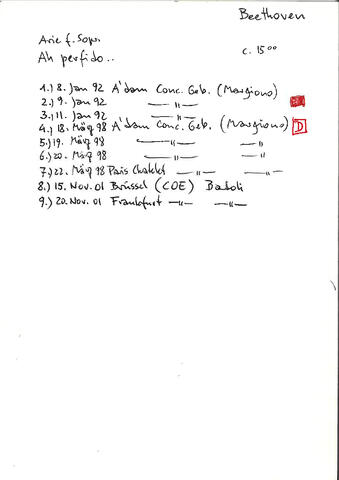 Beethoven
Arie f. Sopr.
Ah perfido.. c. 15⁰⁰
1.) 8. Jan 92 A'dam Conc. Geb. (Margiono)
2.) 9. Jan 92 —〃—
3.) 11. Jan 92 —〃—
4.) 18. März 98 A'dam Conc. Geb. (Margiono) D
5.) 19. März 98 —〃— —〃—
6.) 20. März 98 —〃— —〃—
7.) 22. März 98 Paris Chatelet —〃— —〃—
8.) 15. Nov. 01 Brüssel (COE) Bartoli
9.) 20. Nov. 01 Frankfurt —〃— —〃—